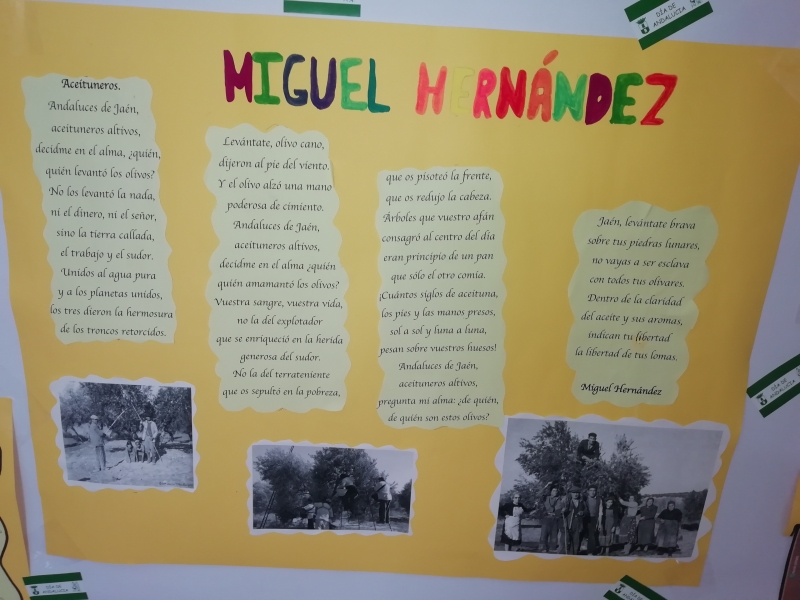 DÍA DE
ANDALUCÍA
MIGUEL HERNÁNDEZ
Aceituneros.
Andaluces de Jaén,
aceituneros altivos,
decidme en el alma, ¿quién,
quién levantó los olivos?
No los levantó la nada,
ni el dinero, ni el señor,
sino la tierra callada,
el trabajo y el sudor.
Unidos al agua pura
y a los planetas unidos,
los tres dieron la hermosura
de los troncos retorcidos.
Levántate, olivo cano,
dijeron al pie del viento.
Y el olivo alzó una mano
poderosa de cimiento.
Andaluces de Jaén,
aceituneros altivos,
decidme en el alma ¿quién
quién amamantó los olivos?
Vuestra sangre, vuestra vida,
no la del explotador
que se enriqueció en la herida
generosa del sudor.
No la del terrateniente
que os sepultó en la pobreza,
que os pisoteó la frente,
que os redujo la cabeza.
Árboles que vuestro afán
consagró al centro del día
eran principio de un pan
que sólo el otro comía.
¡Cuántos siglos de aceituna,
los pies y las manos presos,
sol a sol y luna a luna,
pesan sobre vuestros huesos!
Andaluces de Jaén,
aceituneros altivos,
pregunta mi alma: ¿de quién,
de quién son estos olivos?
Jaén, levántate brava
sobre tus piedras lunares,
no vayas a ser esclava
con todos tus olivares.
Dentro de la claridad
del aceite y sus aromas,
indican tu libertad
la libertad de tus lomas.
Miguel Hernández
DÍA DE
ANDALUCÍA
DÍA DE
ANDALUCÍA
DÍA DE